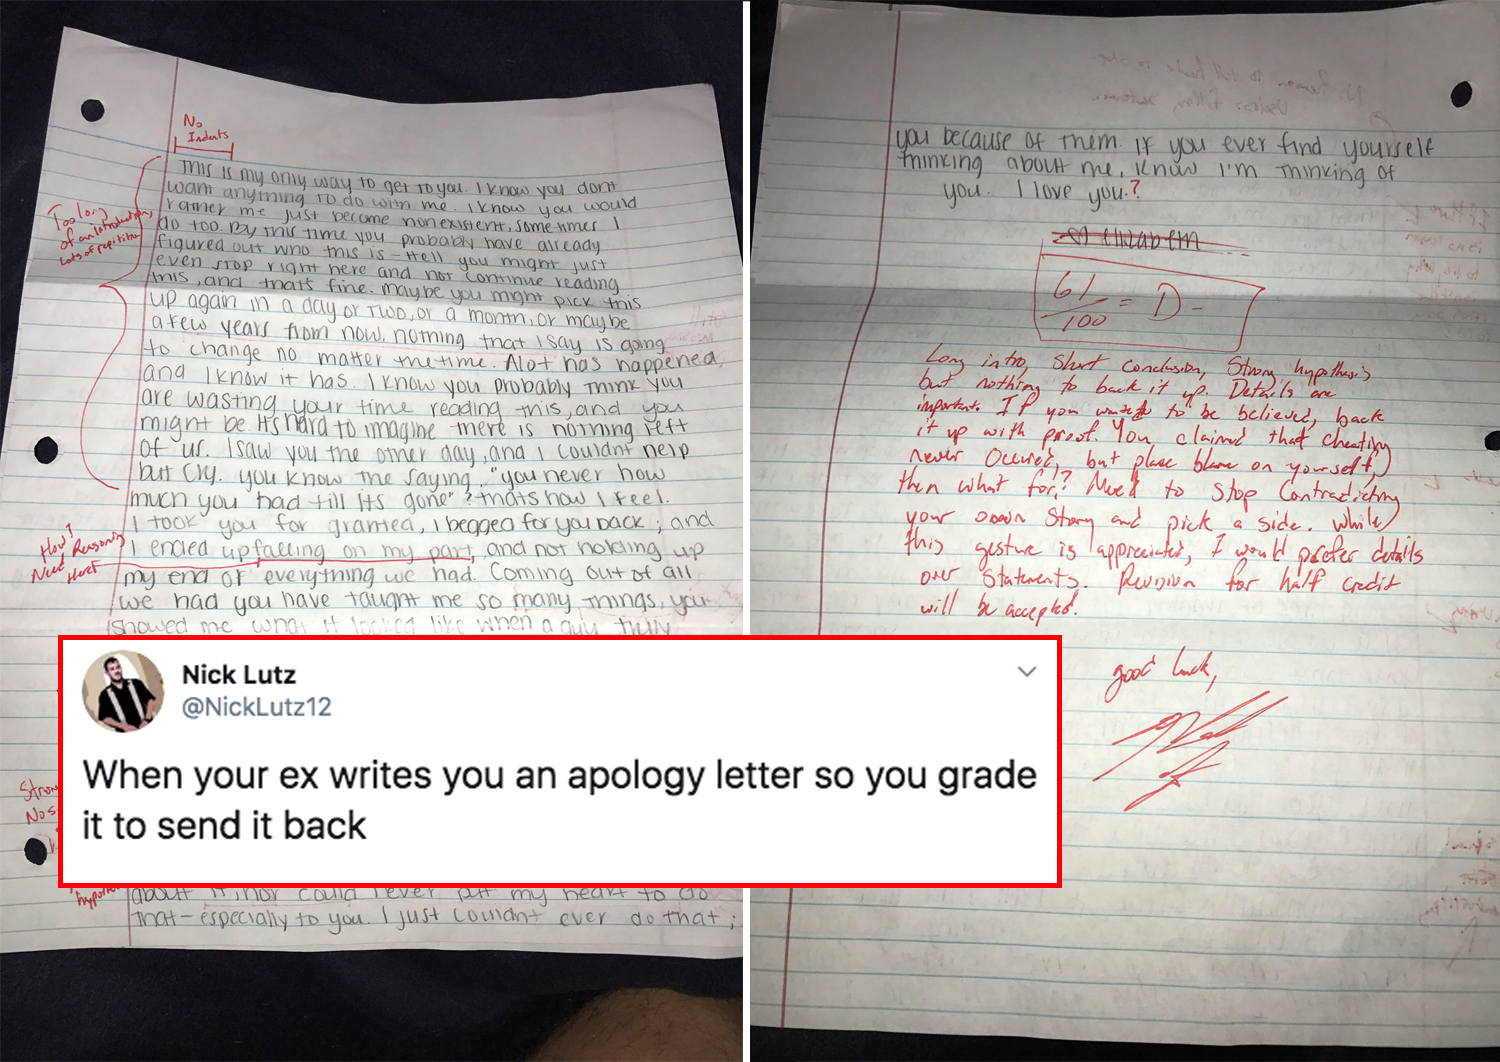 No
Indents
This is my only way to get to you. I know you dont
want anything to do with me. I know you would
rather me just become nonexistent, sometimes I
do too. By this time you probably have already
figured out who this is - Hell you might just
even stop right here and not continue reading
this, and thats fine. maybe you might pick this
up again in a day or two, or a month, or maybe
a few years from now. nothing that I say is going
to change no matter the time. Alot has happened,
and I know it has. I know you probably think you
are wasting your time reading this, and you
might be its hard to imagine there is nothing left
of us. I saw you the other day, and I couldnt help
but cry. you know the saying, "you never how
much you had till its gone"? thats how I feel.
I took you for granted, I begged for you back, and
I ended up falling on my part, and not holding up
my end of everything we had. Coming out of all
we had you have taught me so many things, you
showed me what it looked like when a guy truly
Too long
of an introduction,
Lots of repetition
How?
Need Reasoning
Here
Stron
No s
hypoth
about it, nor could I ever put my heart to do
that - especially to you. I just couldnt ever do that;
you because of them. If you ever find yourself
thinking about me, know I'm thinking of
you. I love you.?
Elizabeth
61/100 = D-
Long intro, short conclusion, Strong hypothesis
but nothing to back it up. Details are
important. If you want to be believed, back
it up with proof. You claimed that cheating
never occured, but place blame on yourself,
then what for? Need to stop contradicting
your own story and pick a side. While
this gesture is appreciated, I would prefer details
over statements. Revision for half credit
will be accepted.
good luck,
Nick Lutz
@NickLutz12
When your ex writes you an apology letter so you grade
it to send it back